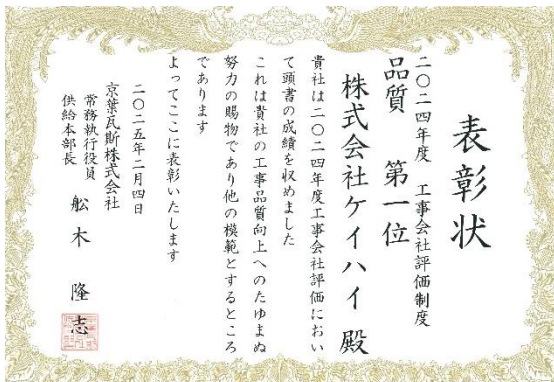 表彰状
二〇二四年度　工事会社評価制度
品質　第一位
株式会社ケイハイ殿
貴社は二〇二四年度工事会社評価におい
て頭書の成績を収めました
これは貴社の工事品質向上へのたゆまぬ
努力の賜物であり他の模範とするところ
であります
よってここに表彰いたします
二〇二五年二月四日
京葉瓦斯株式会社
常務執行役員
供給本部長
舩木　隆志